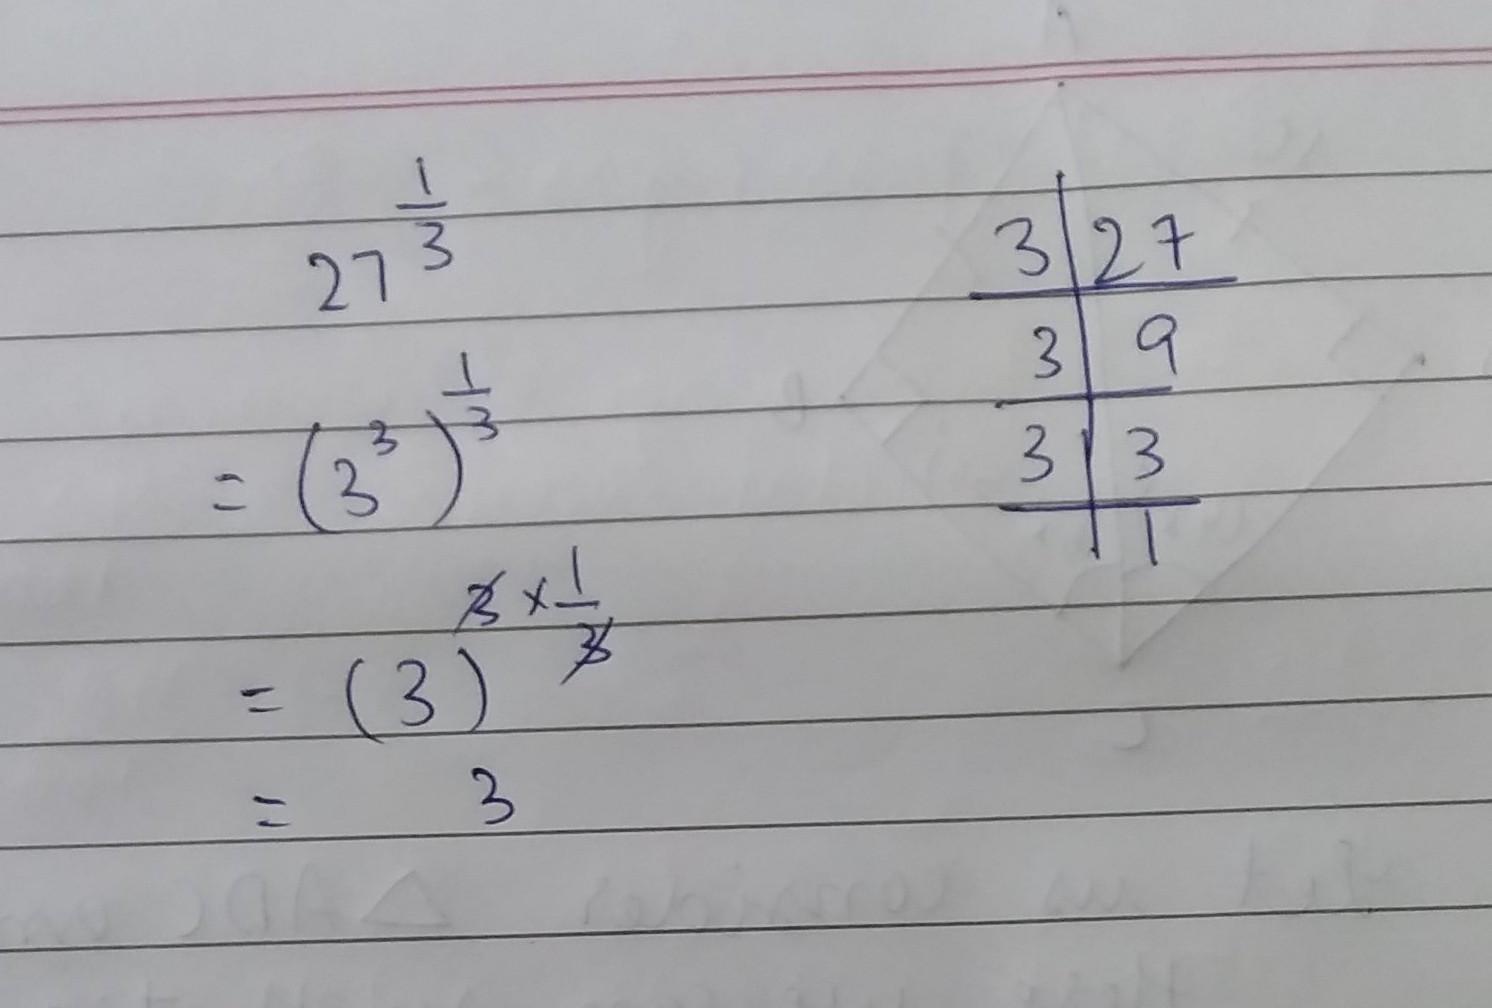 27^(1/3)
= (3^3)^(1/3)
= (3)^(3 × 1/3)
= 3
3 | 27
3 | 9
3 | 3
| 1